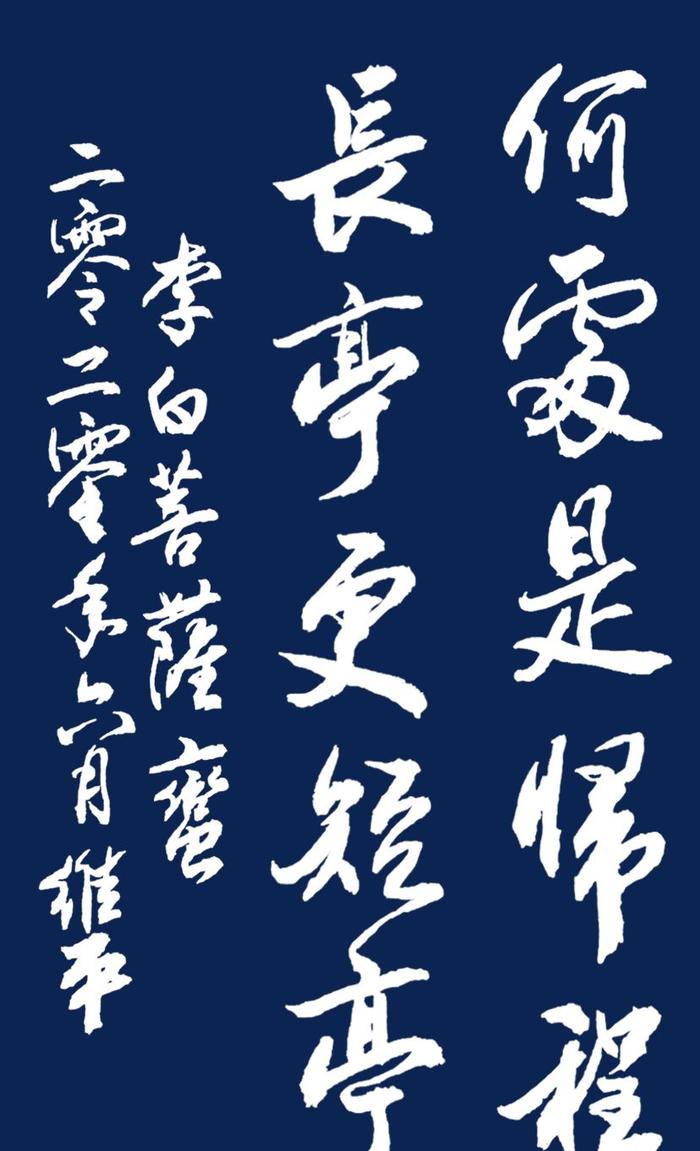 何處是歸程
長亭更短亭
李白菩薩蠻
二零二零年六月維平